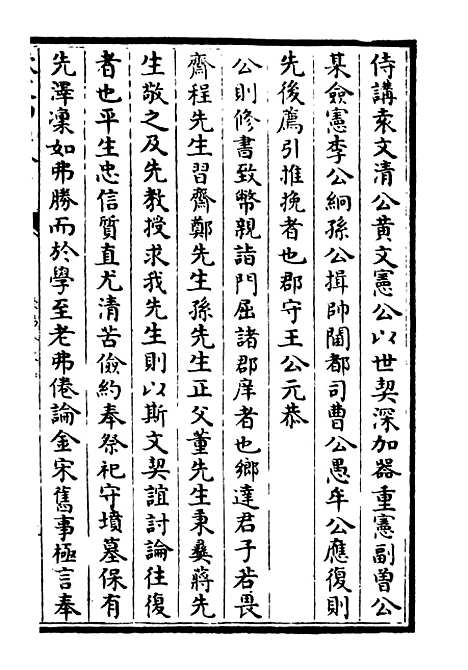 侍講袁文清公黄文憲公以世契深加器重憲副曽公
某僉憲李公絅孫公揖帥閫都司曹公愚牟公應復則
先後薦引推挽者也郡守王公元恭
公則修書致幣親詣門屈諸郡庠者也鄉達君子若畏
齋程先生習齋鄭先生孫先生正父董先生秉彝蔣先
生敬之及先教授求我先生則以斯文契誼討論往復
者也平生忠信質直尤清苦儉約奉祭祀守墳墓保有
先澤凜如弗勝而於學至老弗倦論金宋舊事極言奉